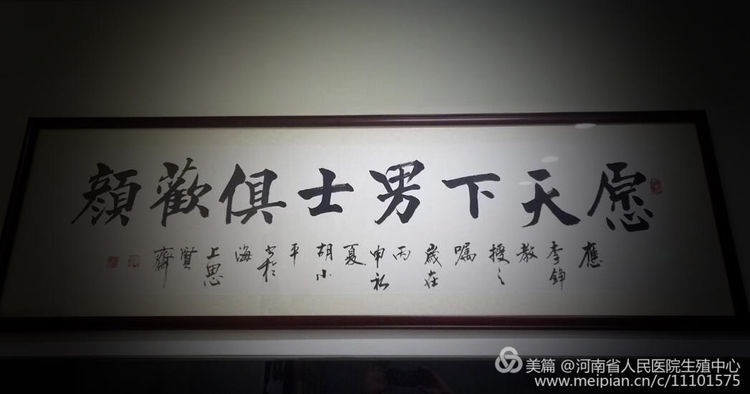 愿天下男士俱歡顏
應李錚教授之嘱歲在丙申初夏胡小平書於海上思賢齋
美篇 @河南省人民医院生殖中心
www.meipian.cn/c/11101575